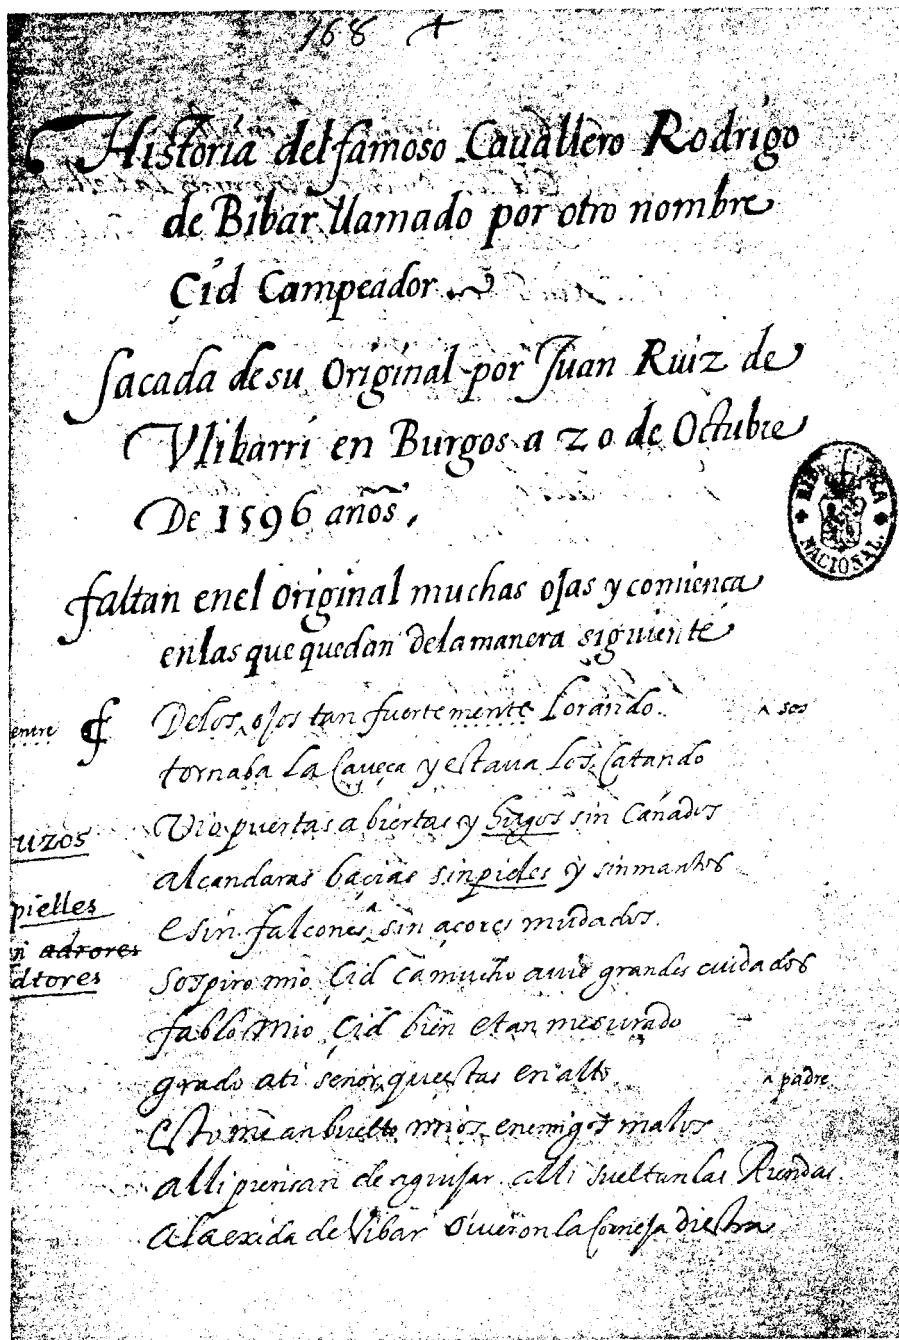 168 +
Historia del famoso Cauallero Rodrigo
de Bibar llamado por otro nombre
Çid Campeador
sacada de su Original por Juan Ruiz de
Vlibarri en Burgos a 20 de Octubre
De 1596 años,
faltan enel original muchas ojas y comiença
enlas que quedan dela manera siguiente
entre Delos ^ ojos tan fuertemente lorando ^ sos
tornaba la Caveça y estaua los Catando
uzos Vio puertas abiertas y hugos sin Cañados
alcandaras baçias sin pieles y sin mantos
pielles e sin falcones ^ sin açores mudados
adrores
adtores sospiro mio Çid ca mucho auie grandes cuidados
fablo mio Çid bien e tan mesurado
grado ati señor ^ que estas en alto ^ padre
Esto me an buelto mios enemigos malos
alli piensan de aguijar alli sueltan las Riendas
ala exida de Vibar ovieron la Corneja diestra
BIBLIOTECA NACIONAL